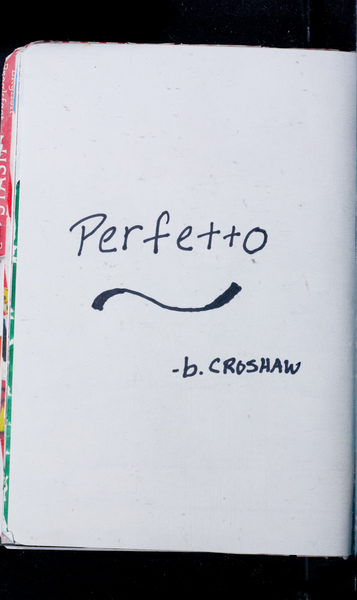 Perfetto
-b. CROSHAW